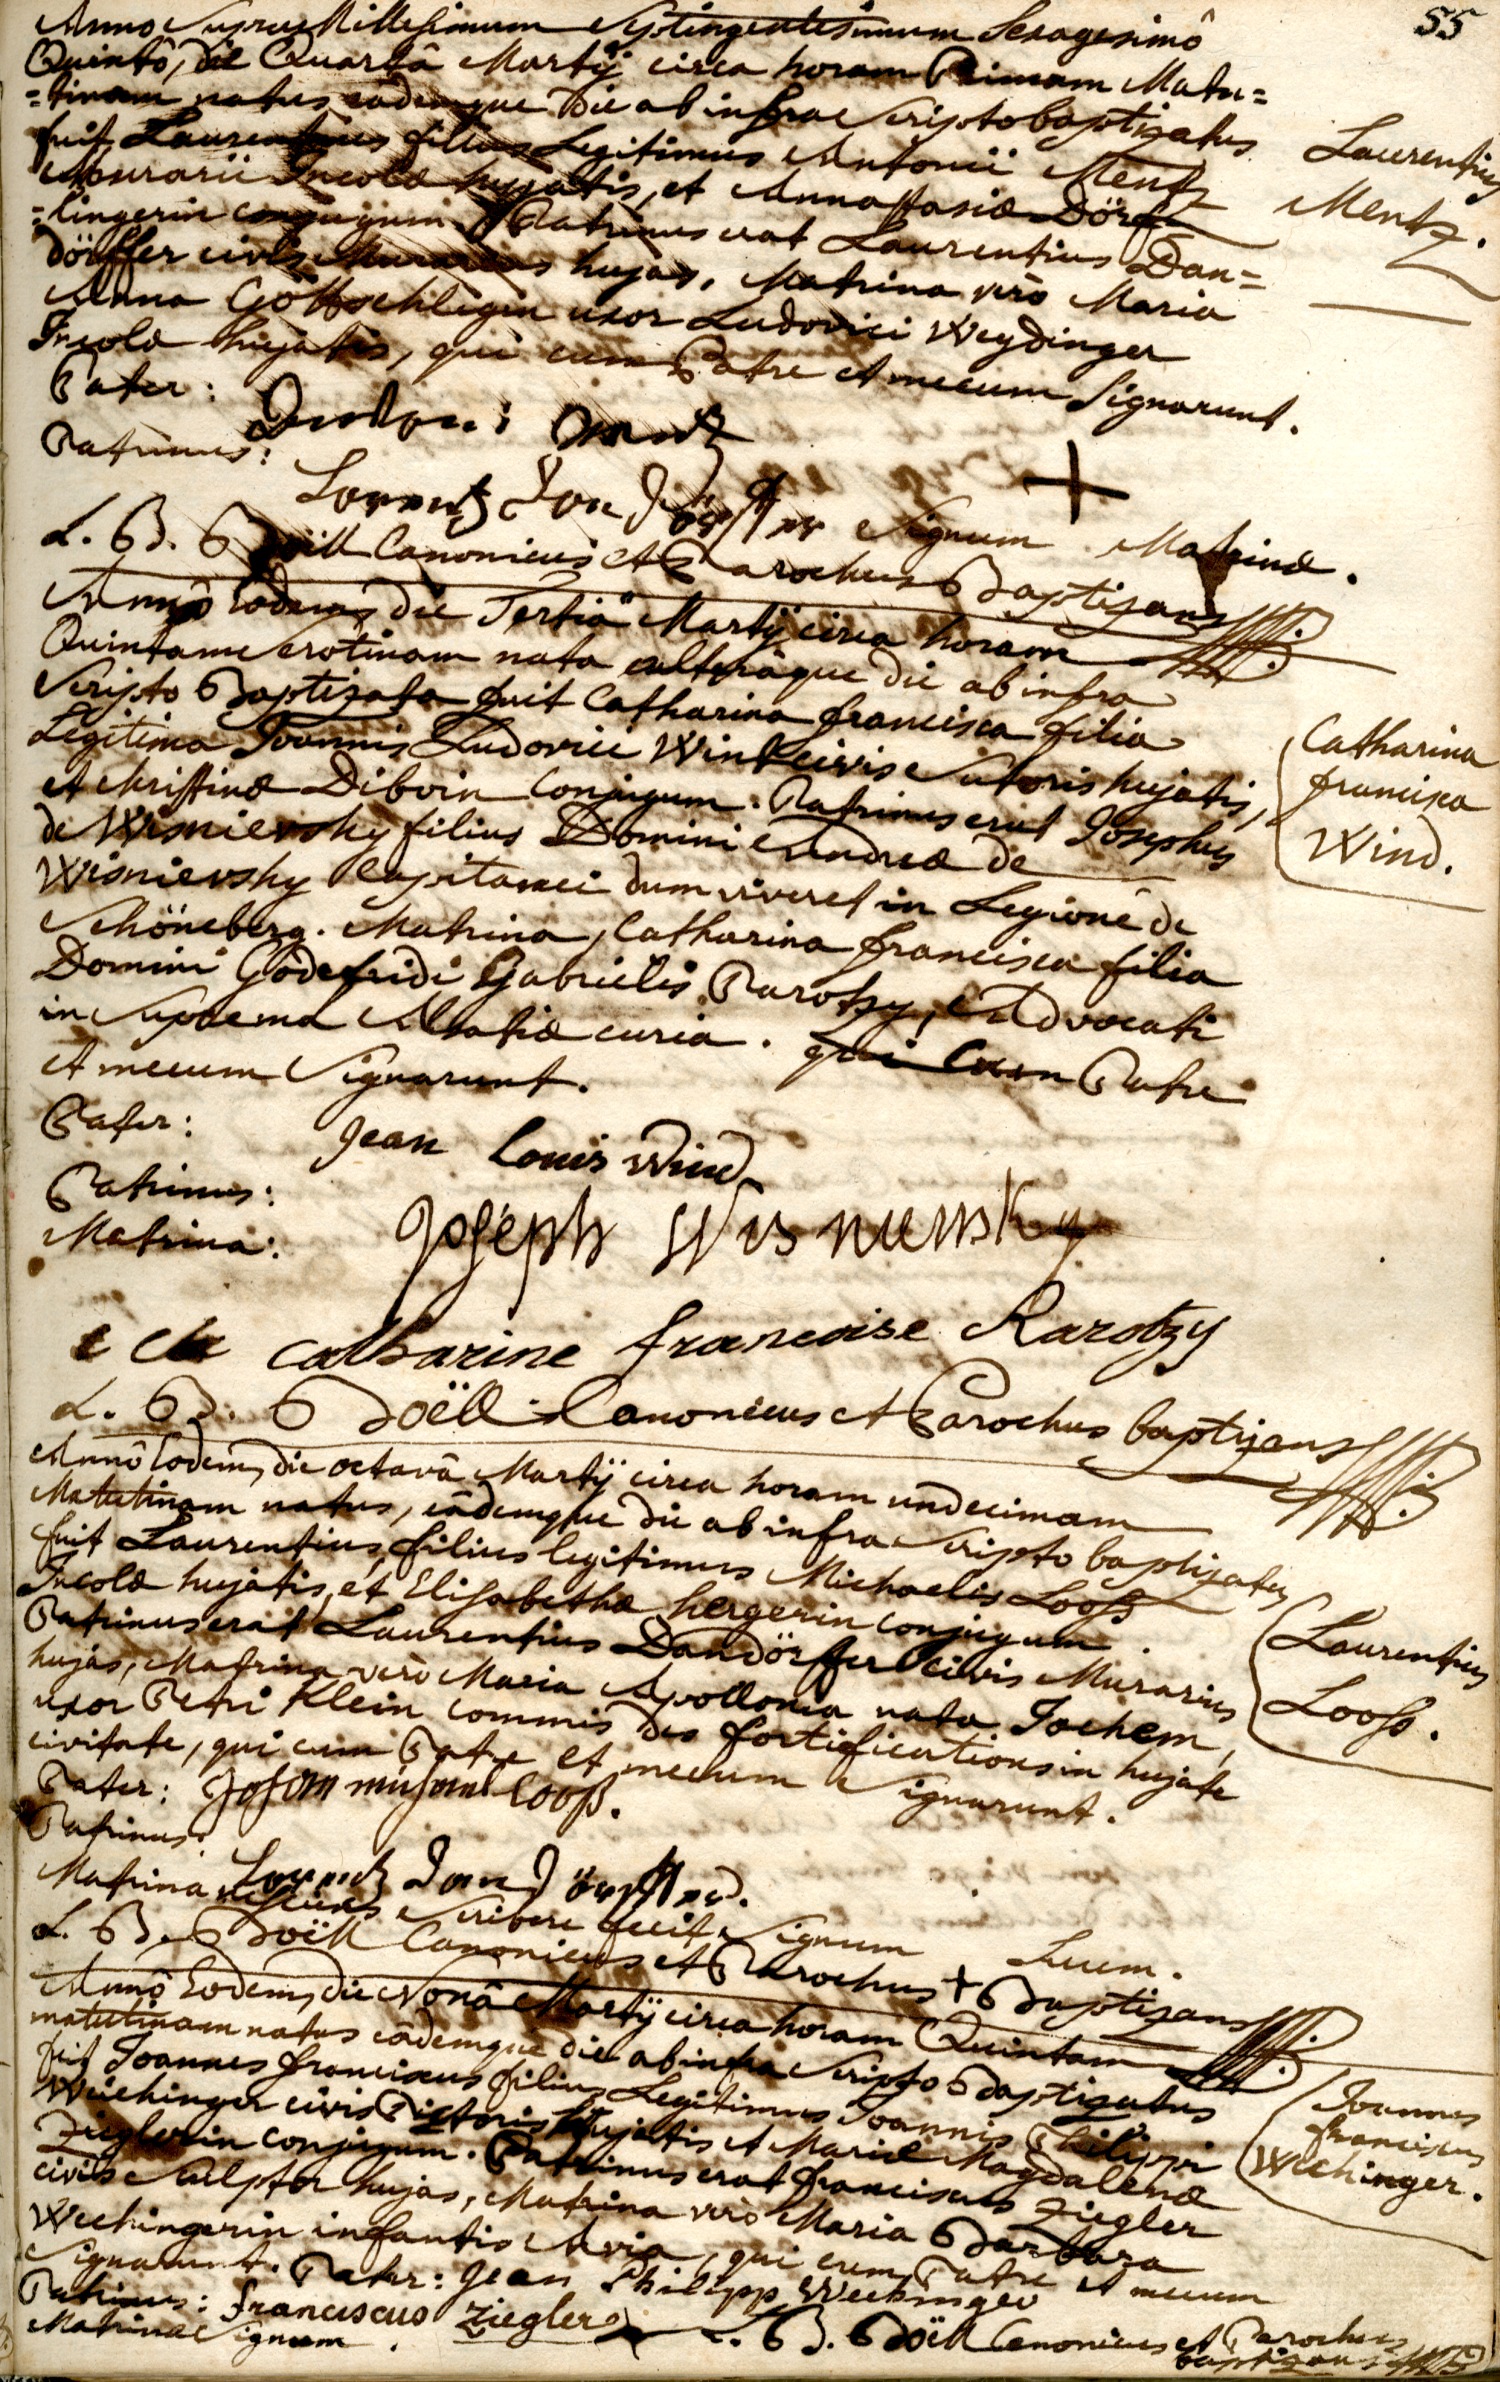 55
Anno supra Millesimum Septingentesimum Sexagesimô
Quintô, die Quartâ Martÿ circa horam Primam Matu=
=tinam natus eademque die ab infra scripto baptizatus
fuit Laurentius filius Legitimus Antonii Mentz
Murarii Incolæ hujatis, et Annastasiæ Dörf
=lingerin conjugum. Patrinus erat Laurentius Dan=
dörffer civis Murarius hujas, Matrina verò Maria
Anna Göttschligin uxor Ludovici Weydinger
Incolæ hujatis, qui cum Patre et mecum signarunt.
Laurentius
Mentz.
Pater: Antoni Mentz
Patrinus: Lorentz Dandörffer Signum + Matrinæ.
L. B. Boëll Canonicus et Parochus Baptizans
Annô Eodem, die Tertiâ Martÿ circa horam
Quintam serotinam nata alterâque die ab infra
scripto Baptizata fuit Catharina francisca filia
Legitima Joannis Ludovici Wind civis sutoris hujatis,
et Christinæ Diboin conjugum. Patrinus erat Josephus
de Wisnievsky filius Domini Andreæ de
Wisnievsky Capitanei dum viveret in Legione de
Schöneberg. Matrina, Catharina francisca filia
Domini Godefridi Gabrielis Rarotzy, Advocati
in supremâ Alsatiæ curia. qui Cum Patre
et mecum Signarunt.
Catharina
francisca
Wind.
Pater: Jean Louis Wind
Patrinus: Joseph Wisniewsky
Matrina:
Catharine francoise Rarotzy
L. B. Boëll Canonicus et Parochus baptizans
Annô Eodem, die octavâ Martÿ circa horam undecimam
Matutinam natus, eâdemque die ab infra scripto baptizatus
fuit Laurentius, filius legitimus Michaelis Looß
Incolæ hujatis, et Elisabethæ hergerin conjugum.
Patrinus erat Laurentius Dandörffer civis Murarius
hujas, Matrina verò Maria Apollonia nata Jochem,
uxor Petri Klein commis des fortifications in hujate
civitate, qui cum Patre et mecum signarunt.
Laurentius
Looß.
Pater: Johan michael Looß.
Patrinus: Lorentz Dandörffer.
Matrina nesciens scribere fecit signum suum.
L. B. Boëll Canonicus et Parochus + Baptizans
Annô Eodem, die Nonâ Martÿ circa horam Quintam
matutinam natus eâdemque die ab infra scripto Baptizatus
fuit Joannes franciscus filius Legitimus Joannis Philippi
Wechinger civis Pictoris hujatis et Mariæ Magdalenæ
Zieglerin conjugum. Patrinus erat franciscus Ziegler
civis sculptor hujas, Matrina verò Maria Barbara
Wechingerin infantis Avia, qui cum Patre et mecum
signarunt. Pater: Jean Philipp Wechinger
Joannes
franciscus
Wechinger.
Patrinus: franciscus Ziegler
Matrinæ Signum. L. B. Boëll Canonicus et Parochus
baptizans